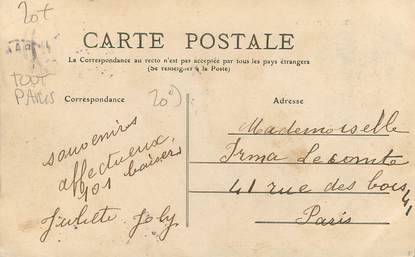 20+
CARTE POSTALE
La Correspondance au recto n'est pas acceptée par tous les pays étrangers
(Se renseigner à la Poste)
TOUT
PARIS
Correspondance
20)
Adresse
souvenirs
affectueux,
101 baisers
Juliette Joly
Mademoiselle
Irma Lecomte
41 rue des bois, 41
Paris